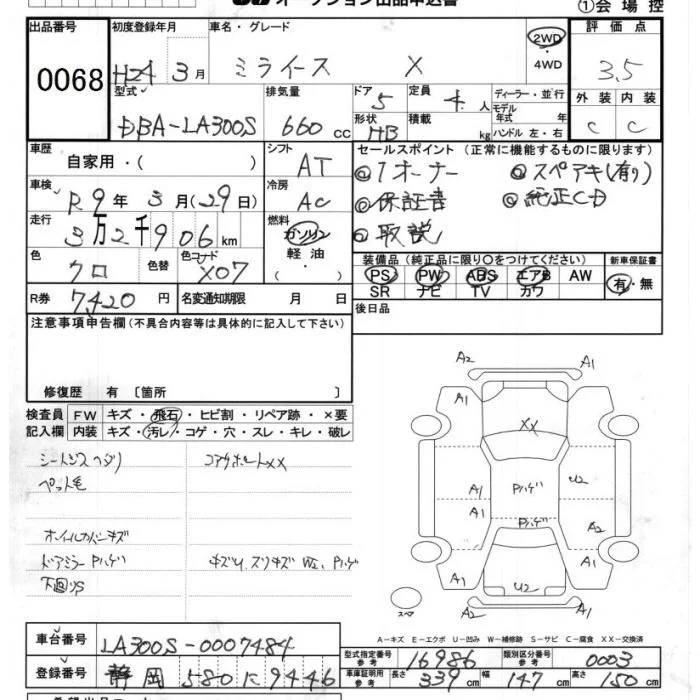 オークション出品申込書 ①会場控
出品番号 初度登録年月 車名・グレード 評価点
0068 H24 3月 ミライース X 2WD ・4WD 3.5
型式 排気量 ドア 5 定員 4 人 ディーラー・並行 外装 内装
DBA-LA300S 660 cc 形状 HB 積載 kg モデル年式 年 ハンドル 左・右 C C
車歴 自家用・( ) シフト AT セールスポイント (正常に機能するものに限ります)
車検 R9年 3月(29日) 冷房 AC ◎1オーナー ◎スペアキ(有り)
走行 3万2千906km 燃料 ガソリン・軽油 ◎保証書 ◎純正CD
◎取説
色 クロ 色替 色コード X07 装備品 (純正品に限り○をつけてください) 新車保証書
PS PW ABS エアB AW 有・無
SR ナビ TV カワ
R券 7,420円 名変通知期限 月 日 後日品
注意事項申告欄(不具合内容等は具体的に記入して下さい)
修復歴 有 〔箇所 〕
検査員 FW キズ・飛石・ヒビ割・リペア跡・×要
記入欄 内装 キズ・汚レ・コゲ・穴・スレ・キレ・破レ
シートシミヘタリ コアサポートXX
ペット毛
ホイールカバーキズ
ドアミラーPハゲ キズU、スリキズ W2、Pハゲ
下回りS
A2 A1
A1 A1
XX
Pハゲ U2
A1
A1 Pハゲ A2
A1 U2 A1
A2 A1
スペア
A-キズ E-エクボ U-凹み W-補修跡 S-サビ C-腐食 XX-交換済
車台番号 LA300S-0007484 型式指定番号 参考 16986 類別区分番号 参考 0003
登録番号 静岡 580 に 9446 車庫証明用 参考 長さ 339cm 幅 147cm 高さ 150cm
希望出品コーナー